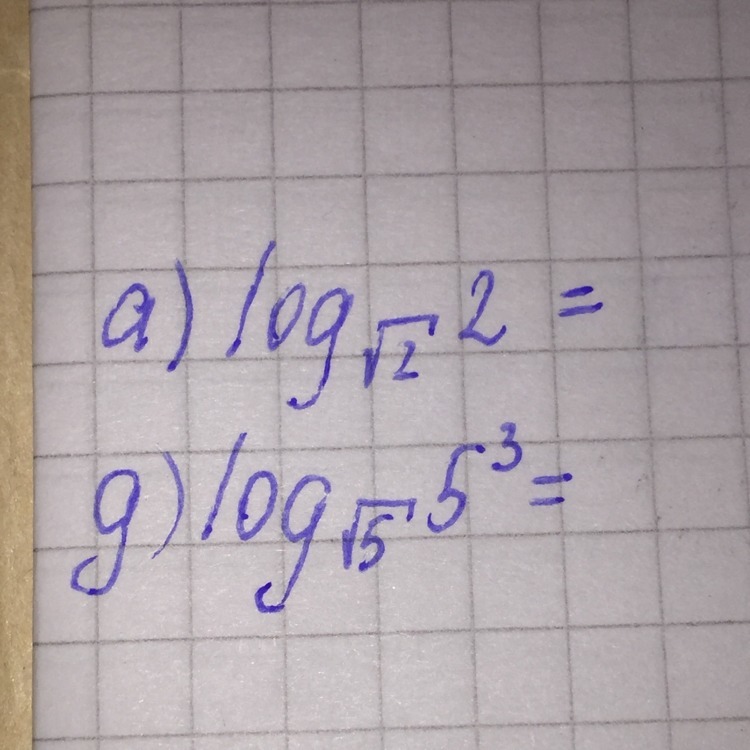 а) log_{√2} 2 =
д) log_{√5} 5³ =